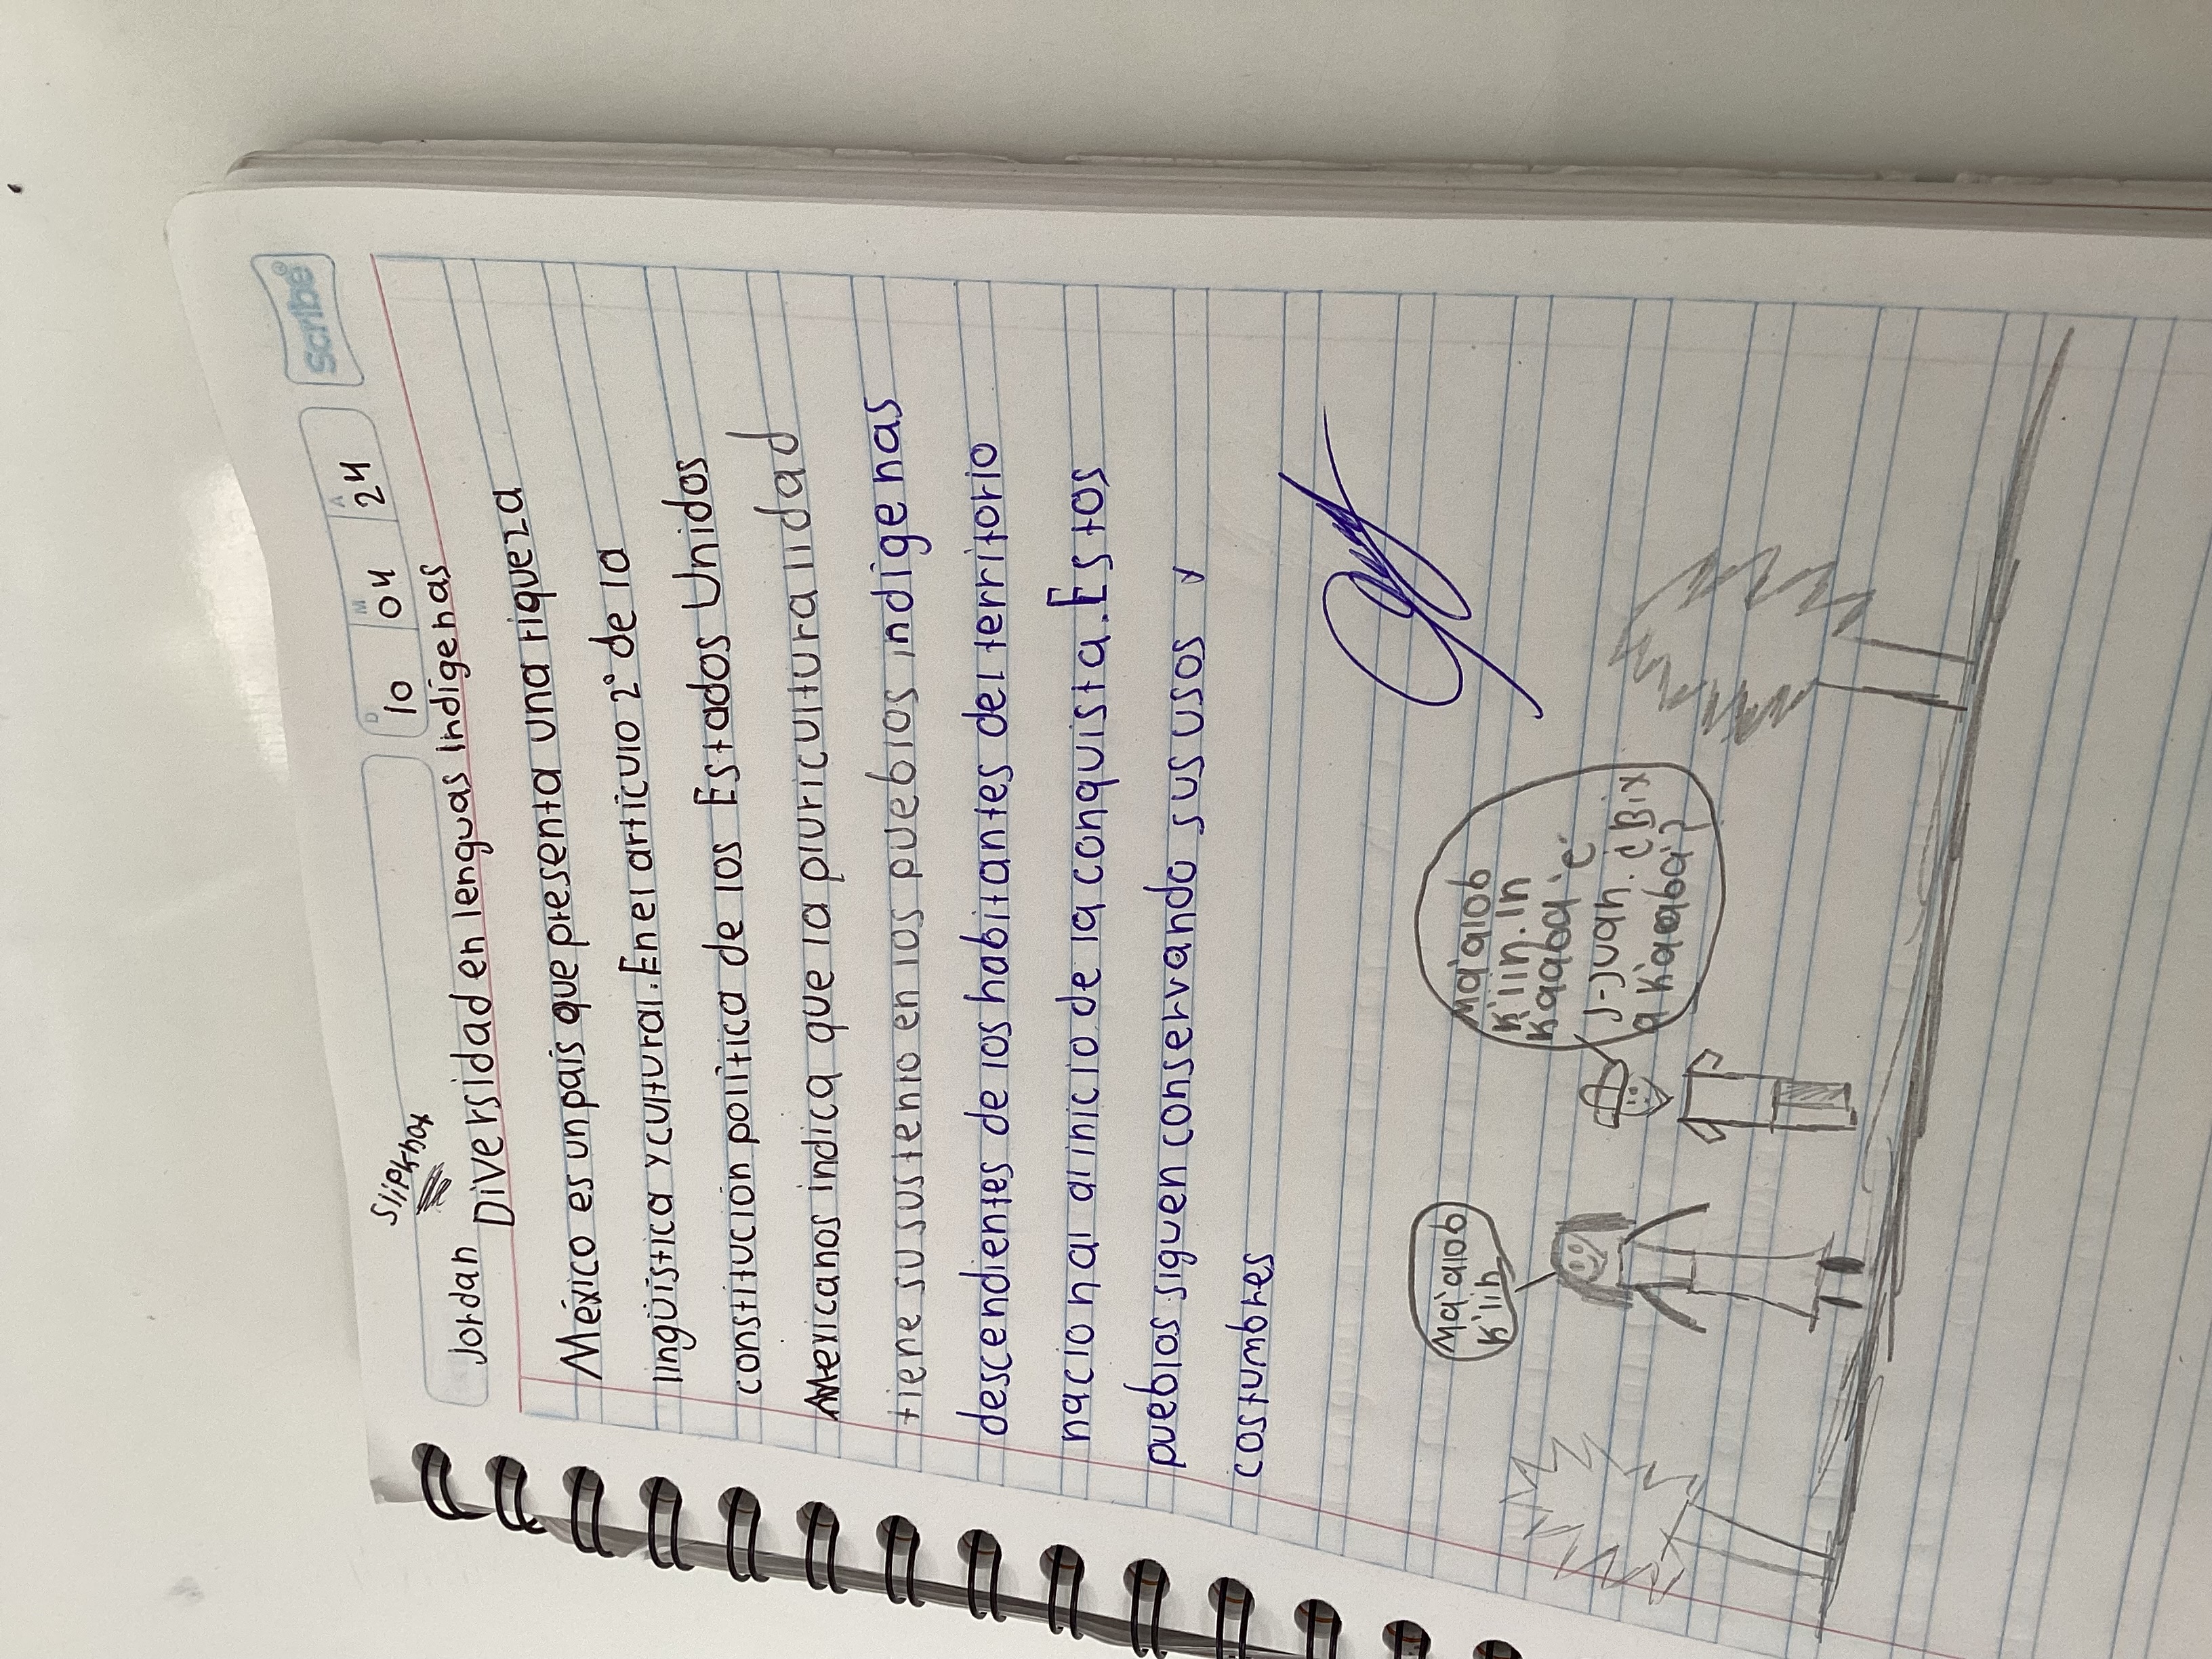 scribe®
D M A
10 04 24
Slipknot
Jordan
Diversidad en lenguas indígenas
México es un país que presenta una riqueza
lingüística y cultural. En el artículo 2° de la
constitución política de los Estados Unidos
Mexicanos indica que la pluriculturalidad
tiene su sustento en los pueblos indigenas
descendientes de los habitantes del territorio
nacional al inicio de la conquista. Estos
pueblos siguen conservando sus usos y
costumbres
Ma'alob
K'iin
Ma'alob
K'iin. In
Kaaba'e'
J-Juan. ¿Bix
a K'aaba'?